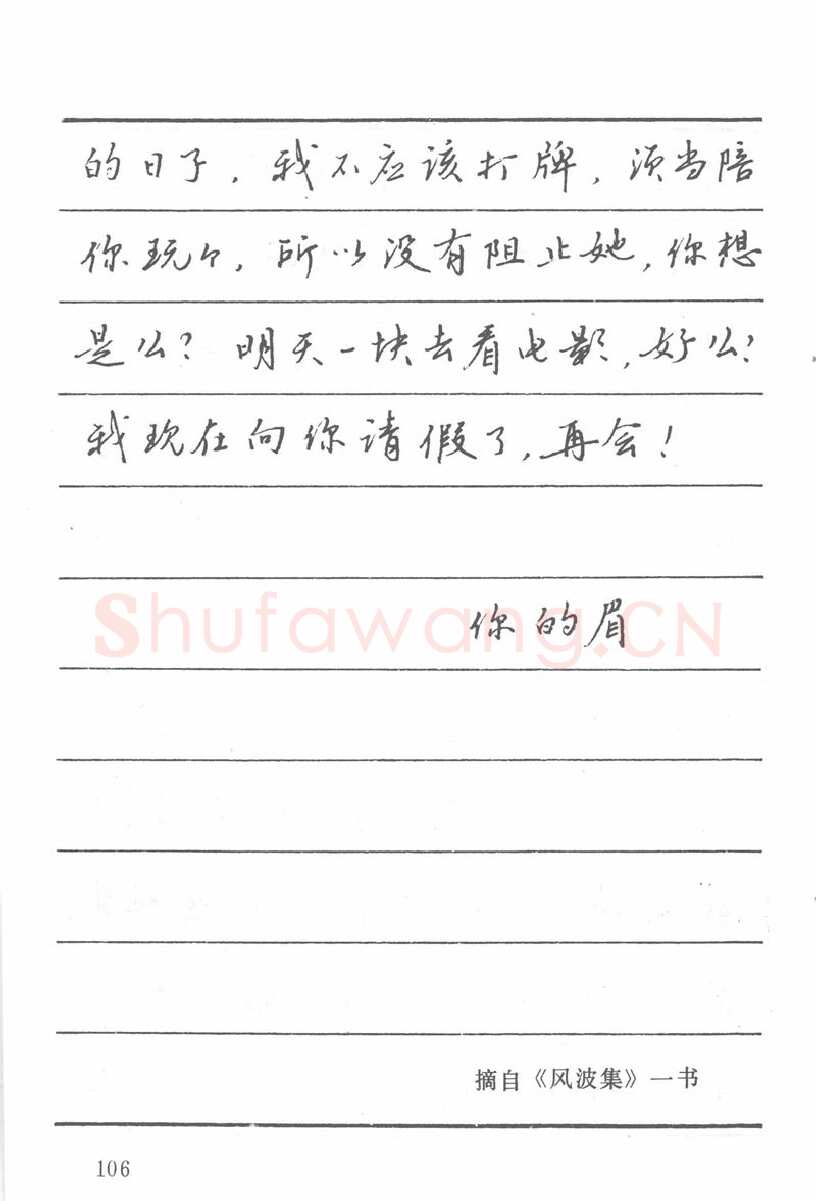 的日子，我不应该打牌，须当陪
你玩玩，所以没有阻止她，你想
是么？明天一块去看电影，好么？
我现在向你请假了，再会！
Shufawang.CN
你的眉
摘自《风波集》一书
106